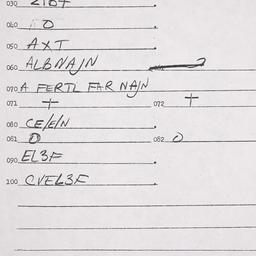 030 2107
040 0
050 AXT
060 ALBNA/N
070 A FERTL FAR NA/N
071 + 072 +
080 CE/E/N
081 0 082 0
090 EL3F
100 CVEL3F